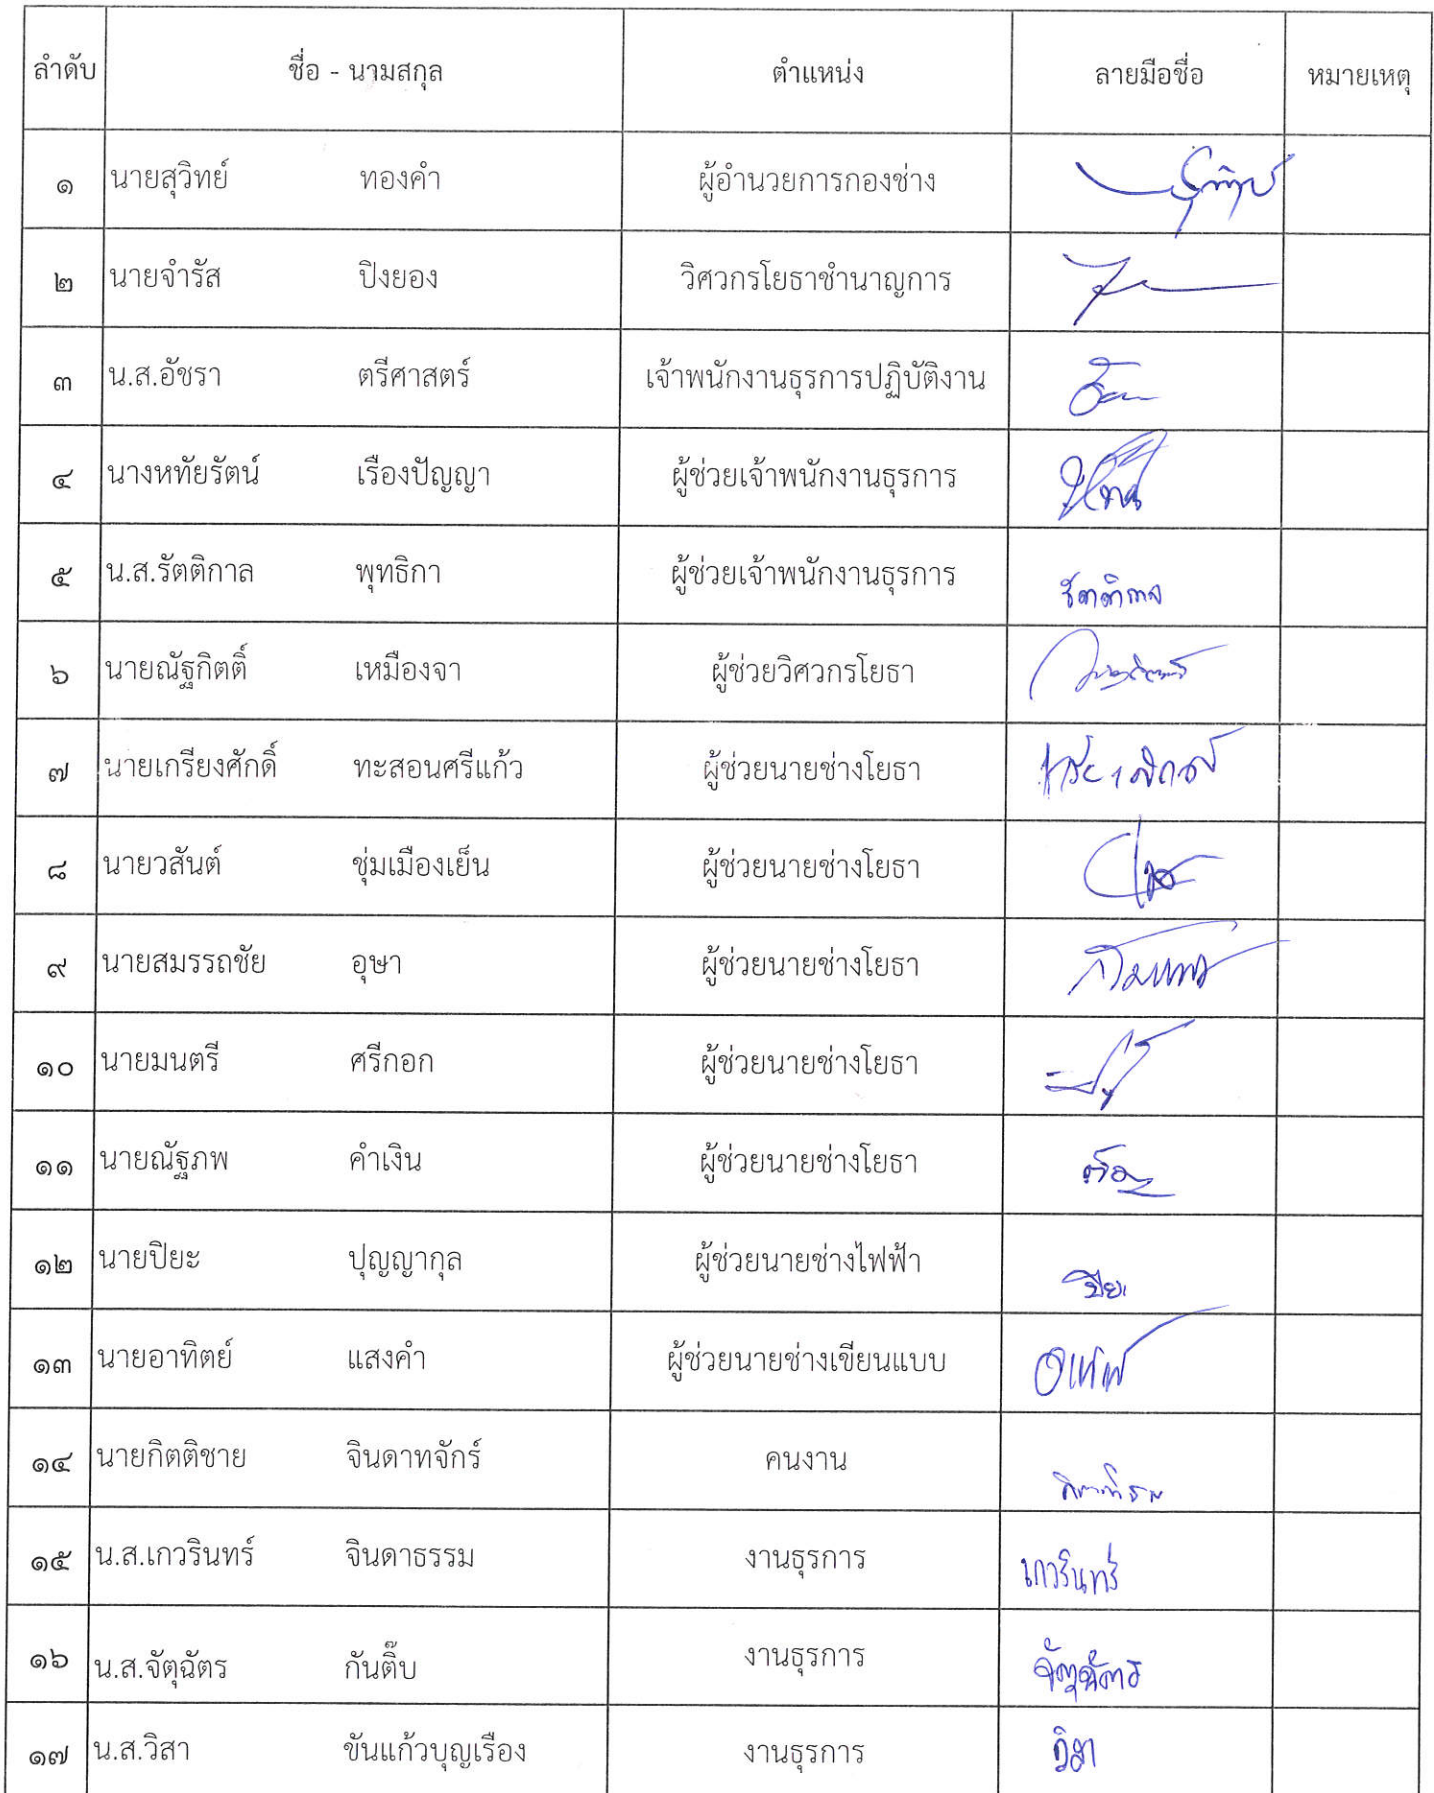 ลำดับ ชื่อ - นามสกุล ตำแหน่ง ลายมือชื่อ หมายเหตุ
๑ นายสุวิทย์ ทองคำ ผู้อำนวยการกองช่าง
๒ นายจำรัส ปิงยอง วิศวกรโยธาชำนาญการ
๓ น.ส.อัชรา ตรีศาสตร์ เจ้าพนักงานธุรการปฏิบัติงาน
๔ นางหทัยรัตน์ เรืองปัญญา ผู้ช่วยเจ้าพนักงานธุรการ
๕ น.ส.รัตติกาล พุทธิกา ผู้ช่วยเจ้าพนักงานธุรการ รัตติกาล
๖ นายณัฐกิตติ์ เหมืองจา ผู้ช่วยวิศวกรโยธา
๗ นายเกรียงศักดิ์ ทะสอนศรีแก้ว ผู้ช่วยนายช่างโยธา
๘ นายวสันต์ ชุ่มเมืองเย็น ผู้ช่วยนายช่างโยธา
๙ นายสมรรถชัย อุษา ผู้ช่วยนายช่างโยธา
๑๐ นายมนตรี ศรีกอก ผู้ช่วยนายช่างโยธา
๑๑ นายณัฐภพ คำเงิน ผู้ช่วยนายช่างโยธา
๑๒ นายปิยะ ปุญญากุล ผู้ช่วยนายช่างไฟฟ้า ปิยะ
๑๓ นายอาทิตย์ แสงคำ ผู้ช่วยนายช่างเขียนแบบ
๑๔ นายกิตติชาย จินดาทจักร์ คนงาน กิตติชาย
๑๕ น.ส.เกวรินทร์ จินดาธรรม งานธุรการ เกวรินทร์
๑๖ น.ส.จัตุฉัตร กันติ๊บ งานธุรการ จัตุฉัตร
๑๗ น.ส.วิสา ขันแก้วบุญเรือง งานธุรการ วิสา